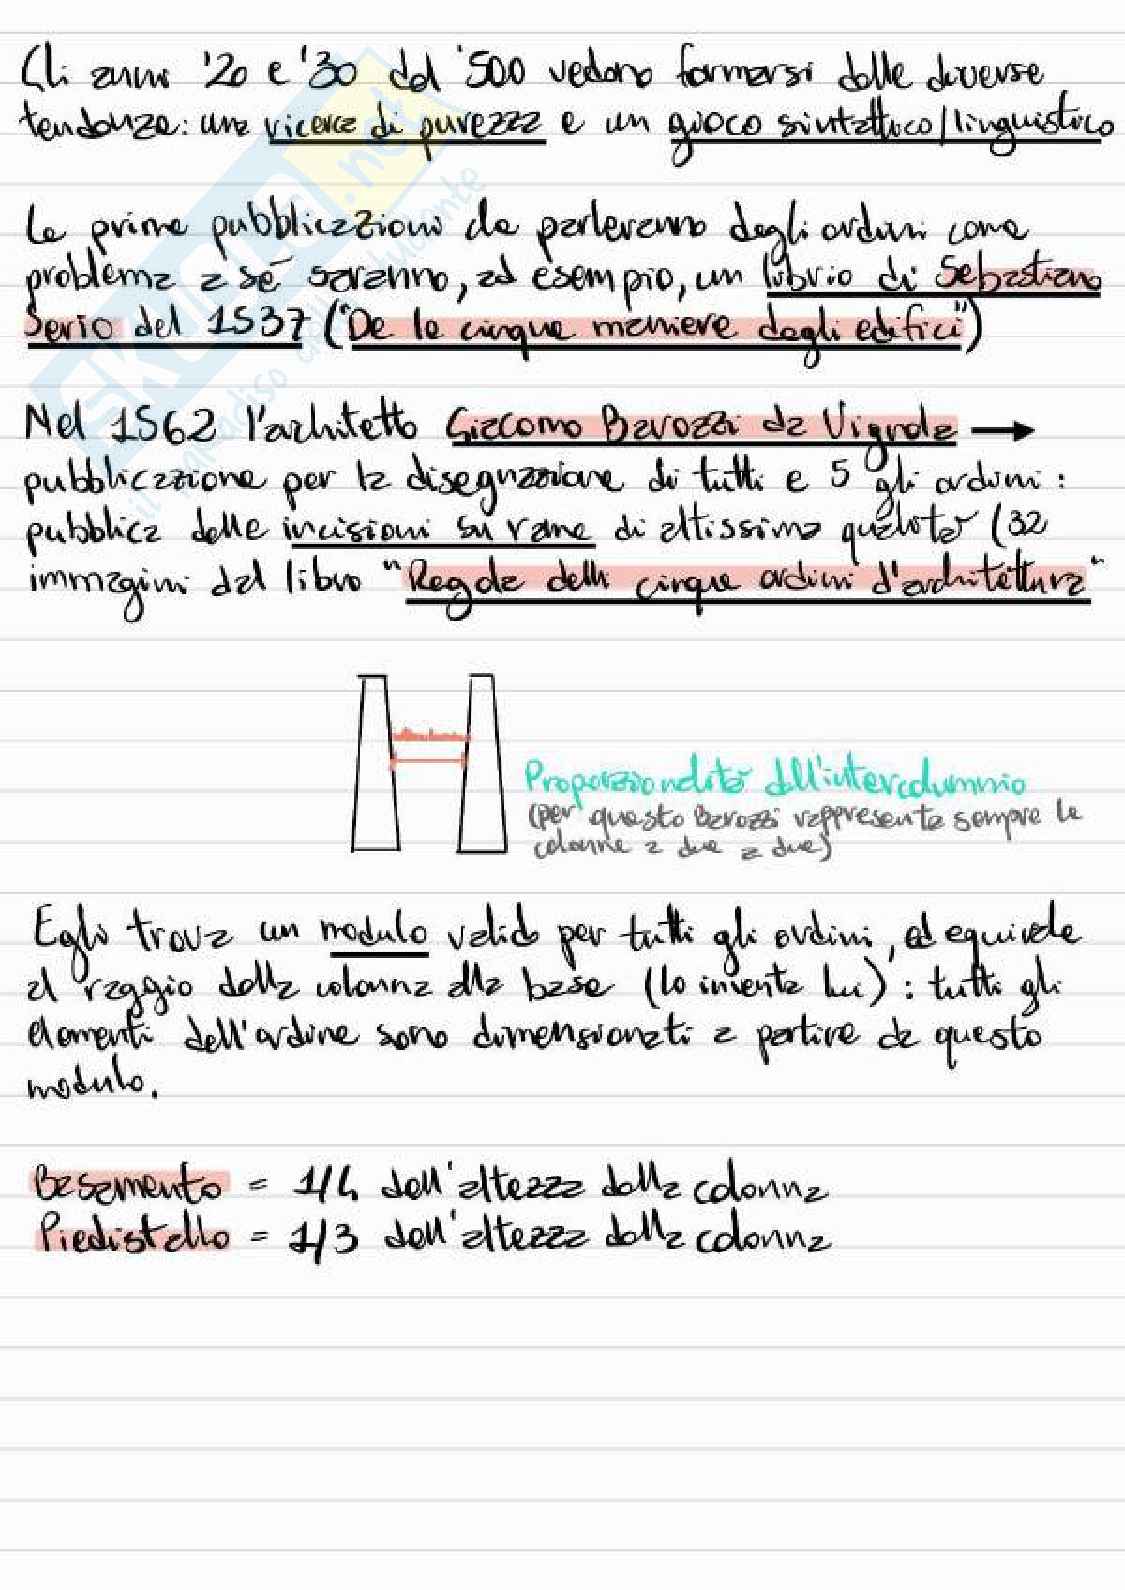 Gli anni '20 e '30 del '500 vedono formarsi delle diverse
tendenze: una ricerca di purezza e un gioco sintattico/linguistico
Le prime pubblicazioni che parleranno degli ordini come
problema a sé saranno, ad esempio, un librio di Sebastiano
Serio del 1537 ("De le cinque maniere degli edifici")
Nel 1562 l'architetto Giacomo Barozzi da Vignola →
pubblicazione per la disegnazione di tutti e 5 gli ordini:
pubblica delle incisioni su rame di altissima qualità (32
immagini dal libro "Regola delli cinque ordini d'architettura"
Proporzionalità dell'intercolumnio
(per questo Barozzi rappresenta sempre le
colonne a due a due)
Egli trova un modulo valido per tutti gli ordini, ed equivale
al raggio della colonna alla base (lo inventa lui): tutti gli
elementi dell'ordine sono dimensionati a partire da questo
modulo.
Basamento = 1/4 dell'altezza della colonna
Piedistallo = 1/3 dell'altezza della colonna
skuola.net